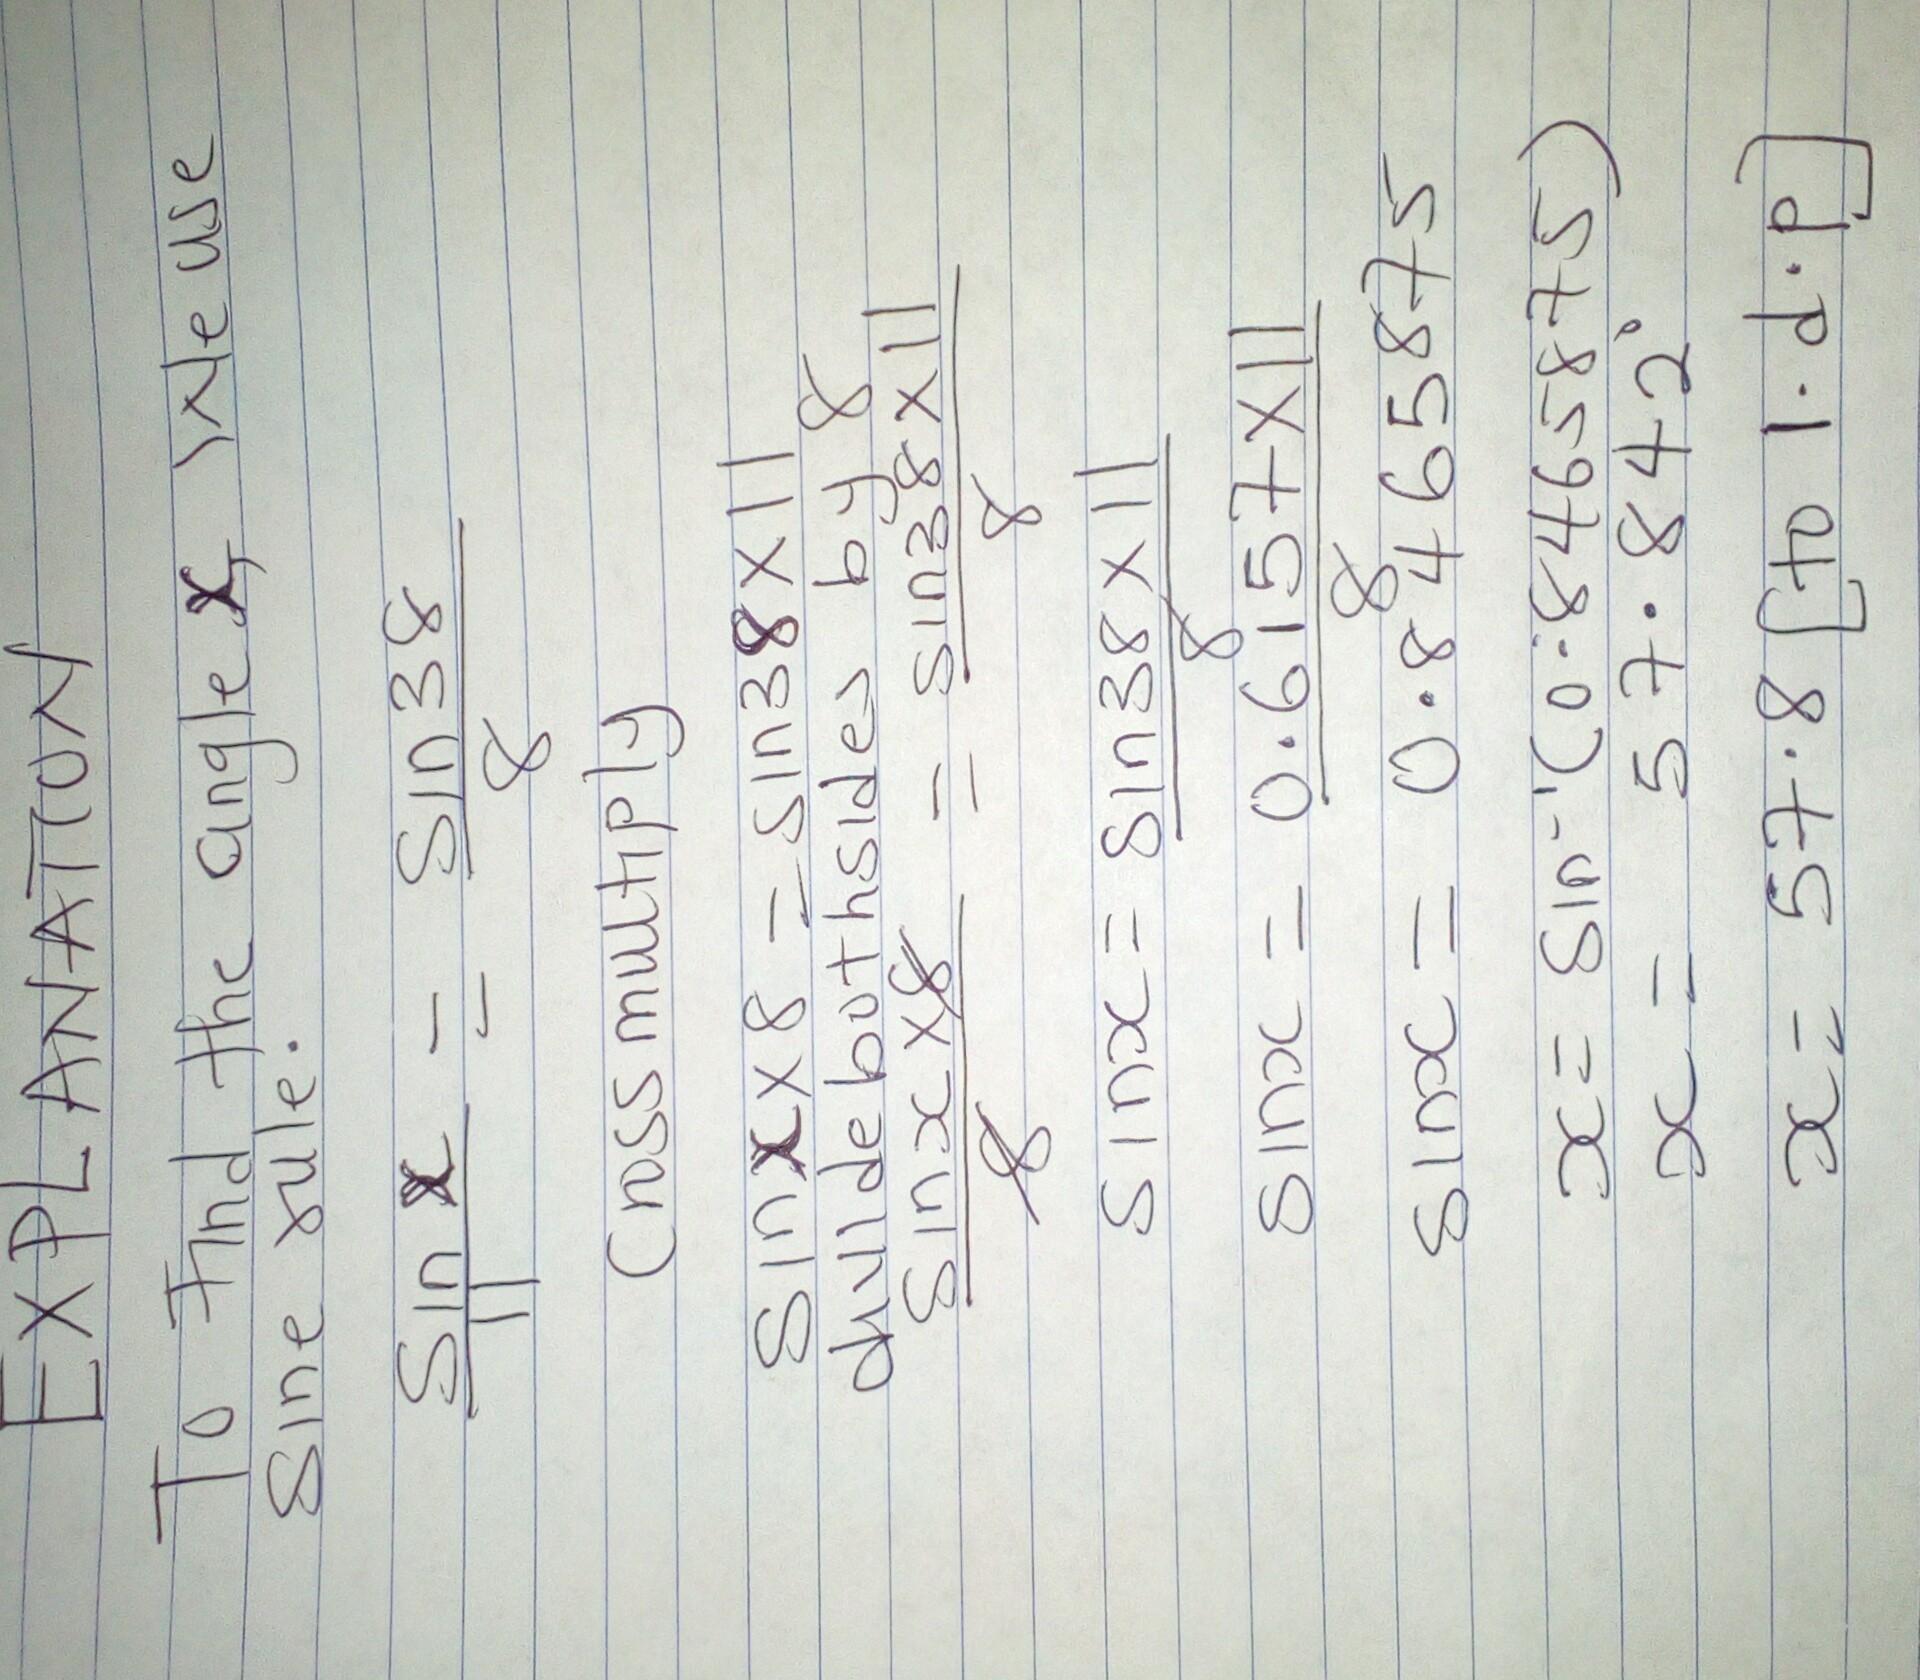 EXPLANATION
To find the angle x, we use
sine rule.
Sin x = Sin38
11 8
Cross multiply
Sin x × 8 = Sin38 × 11
divide both sides by 8
Sin x × 8 = Sin38 × 11
8 8
Sin x = Sin38 × 11
8
Sin x = 0.6157 × 11
8
Sin x = 0.8465875
x = Sin⁻¹(0.8465875)
x = 57.842°
x = 57.8 [to 1.d.p]